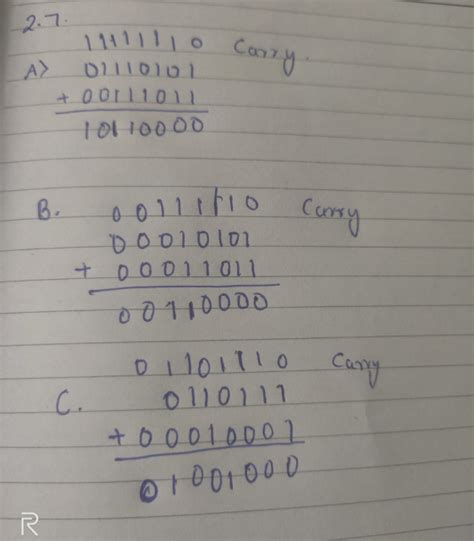 2.7.
11111110 Carry.
A> 01110101
+ 00111011
10110000
B. 00111110 Carry
00010101
+ 00011011
00110000
01101110 Carry
C. 0110111
+ 00010001
01001000
R